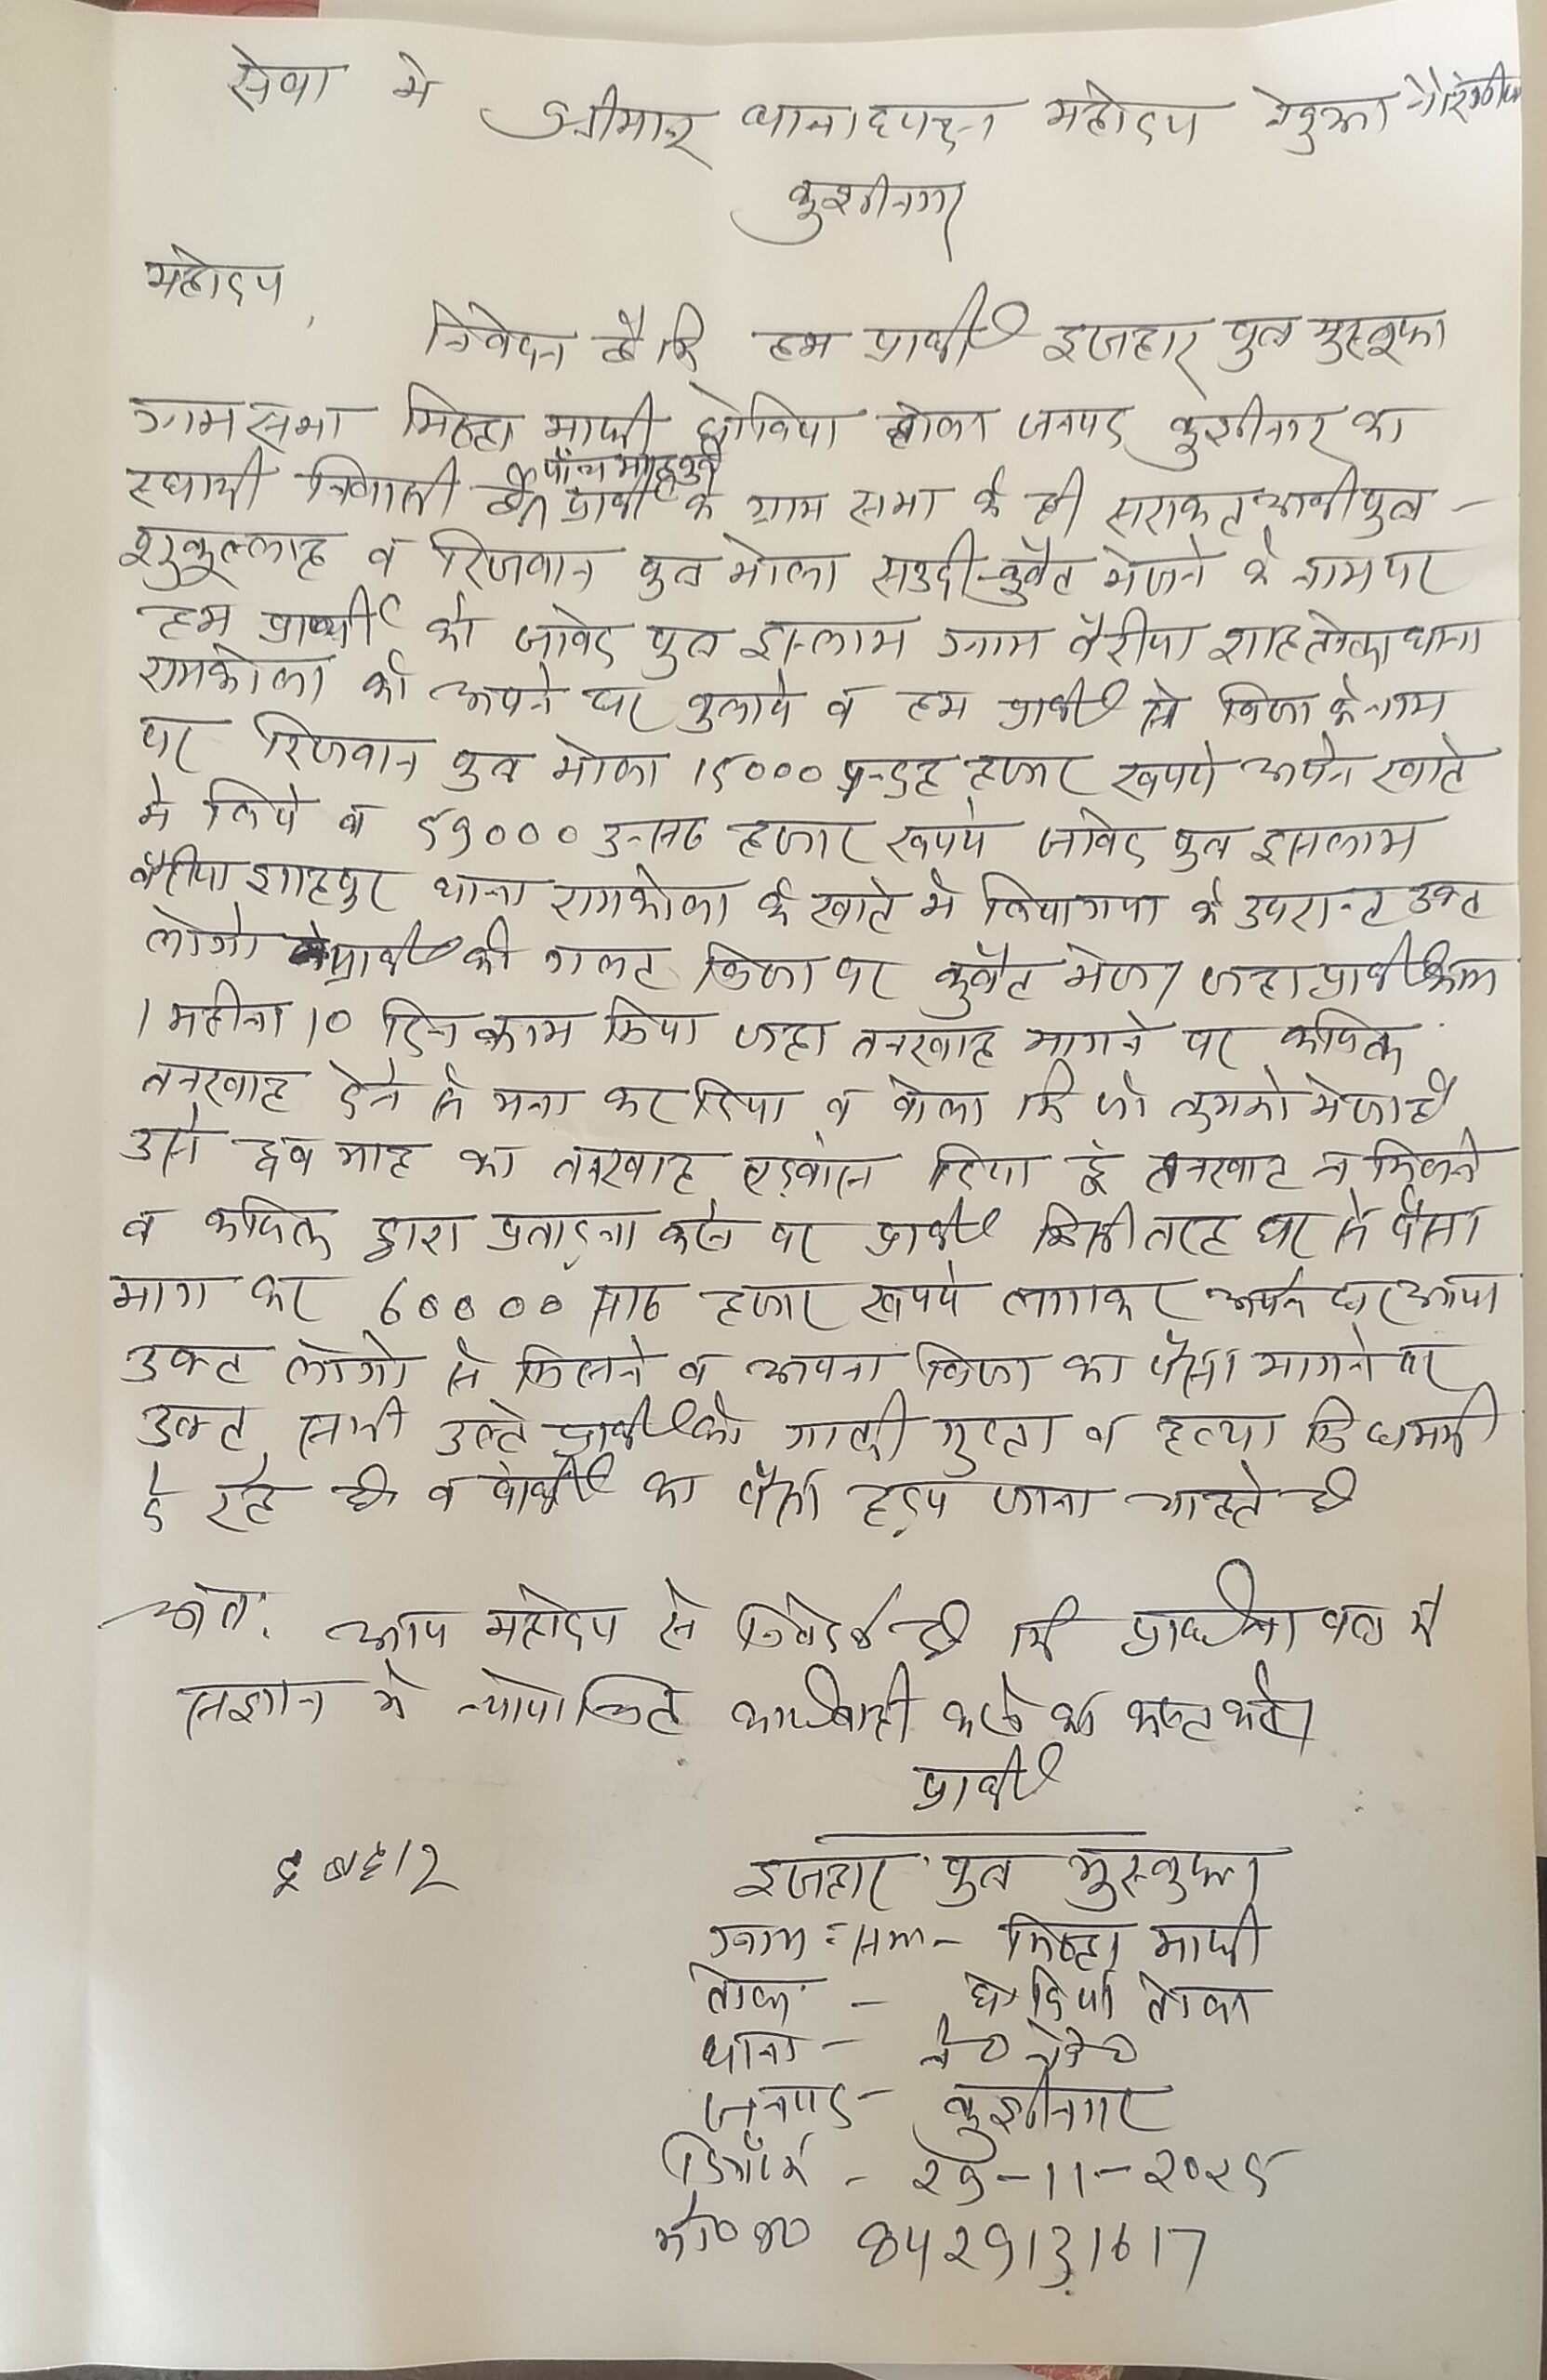 सेवा मे
श्रीमान थानाध्यक्ष महोदय नेबुआ नौरंगीया
कुशीनगर
महोदय,
निवेदन है कि हम प्रार्थी इजहार पुत्र मुस्तुफा
ग्रामसभा माफी टोला जनपद कुशीनगर का
स्थायी निवासी हूँ पाँच माह पूर्व प्रार्थी के ग्राम सभा के ही सराकत अली पुत्र -
शुकुल्लाह व रिजवान पुत्र मोला सउदी-कुवैत भेजने के नाम पर
हम प्रार्थी को जावेद पुत्र इस्लाम ग्राम वैरीया थाना
रामकोला को अपने घर बुलाये व हम प्रार्थी से विजा के नाम
पर रिजवान पुत्र मोला 15000 पन्द्रह हजार रूपये अपने खाते
मे लिये व 59000 उनसठ हजार रूपये जावेद पुत्र इसलाम
वैरीया शाहपुर थाना रामकोला के खाते मे लिया गया के उपरान्ट उक्ट
लोगो ने प्रार्थी को गलट विजा पर कुवैट भेजा जहा प्रार्थी
1 महीना 10 दिन काम किया जहा तनखाह मागने पर कफिल
तनखाह देने से मना कर दिया व बोला कि जो तुमको भेजा है
उसे माह का तनखाह एडवांस दिया हूँ तनखाह न मिलने
व कफिल द्वारा प्रताड़ना करने पर प्रार्थी किसी तरह घर से पैसा
माग कर 60000 साठ हजार रूपये लगाकर अपने घर आया
उक्ट लोगो से मिलने व अपना विजा का पैसा मागने पर
उक्ट सभी उल्टे प्रार्थी को गाली गुप्ता व हत्या कि धमकी
दे रहे है व प्रार्थी का पैसा हड़प जाना चाहते है
अतः आप महोदय से निवेदन है कि प्रार्थना पत्र मे
सज्ञान मे न्योयाचित कार्यवाही करने का कष्ट करे।
प्रार्थी
इजहार
इजहार पुत्र मुस्तुफा
ग्राम सभा - माफी
टोला - टोला
थाना - ने० नौ०
जनपद - कुशीनगर
दिनांक - २९-11-२०२५
मो० न० 8429131617